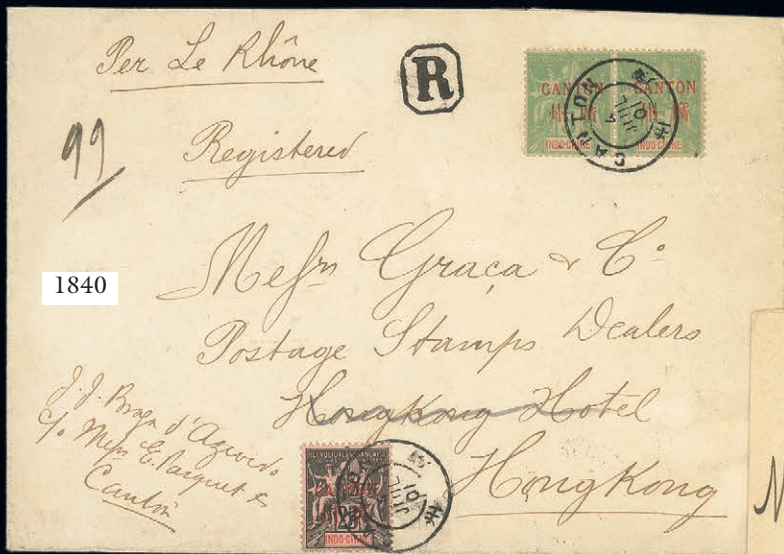 Per Le Rhône
R
CANTON CANTON
廣州 廣州
INDO-CHINE INDO-CHINE
CANTON
JUIL
01
99
Registered
Messrs Graça & Co
1840
Postage Stamps Dealers
Hongkong Hotel
HongKong
J. J. Braga d'Azevedo
c/o Messrs E. Pasquet &
Canton
INDO-CHINE
JUIL
01
N